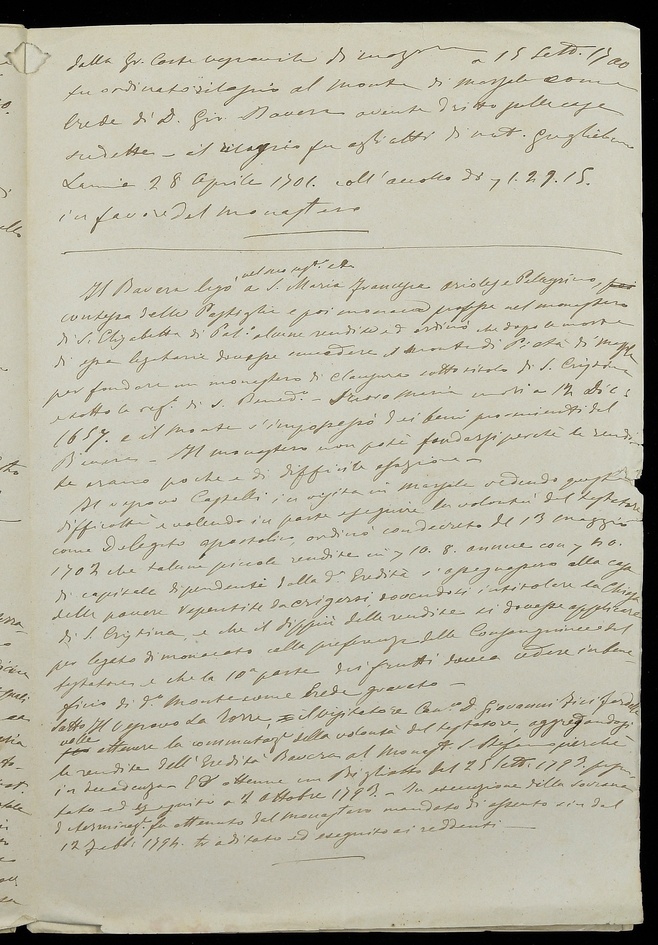 dalla Gr. Corte vescovile di Mazara a 15 Sett. 1700
fu ordinato rilascio al monte di Marsala come
Erede di D. Gio. Bavera avente dritto sulle case
sudette – il rilascio fu agli atti di not. Guglielmo
Lamia 28 Aprile 1701. coll'accollo di 1.29.15.
in favore del monastero
Il Bavera legò a S. Maria Francesca e Pellegrino,
contessa delle e poi monaca professa nel monastero
di S. Elisabetta di Pal.o alcune rendite ed ordinò che dopo la morte
di essa legataria dovesse succedere il monte di Pietà di
per fondare un monastero di clausura sotto titolo di S. Cristina
e sotto la reg.a di S. Bened.o – Maria morì a 12 Dic.
1657. e il monte s'impossessò dei beni provenienti del
Bavera – Il monastero non potè fondarsi perchè le rendi
te erano poche e di difficile esazione –
Il vescovo Castelli in visita in Marsala vedendo questa
difficoltà e volendo in parte eseguire la volontà del testatore
come Delegato apostolico, ordinò con decreto del 13 maggio
1702 che talune piccole rendite in 10. 8. annue con
di capitale dipendenti dalla d.a Eredità s'assegnassero alla casa
delle povere repentite da erigersi dovendosi intitolare la Chiesa
di S. Cristina, e che il dippiù delle rendite si dovesse applicare
per legato di monacato colla preferenza delle Consanguinee del
testatore e che la 10a parte dei frutti dovea cedere in bene
ficio di d.o monte come Erede gravato –
Il vescovo La Torre il visitatore Can.o D. Giovanni
ottenere la commutaz.e della volontà del testatore aggregandosi
le rendite dell'Eredità Bavera al Monast.o S. Stefano perchè
in decadenza. Ed ottenne un Biglietto del 25 Sett. 1793.
tato ed eseguito a 2 Ottobre 1793. – In esecuzione della sovrana
determinaz.e fu ottenuto dal monastero mandato di assento sin dal
12 Febb. 1794. ed eseguito ai reddenti –